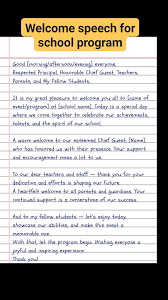 Welcome speech for
school program
Good [morning/afternoon/evening] everyone,
Respected Principal, Honorable Chief Guest, Teachers,
Parents, and My Fellow Students,
It is my great pleasure to welcome you all to [name of
event/program] at [school name]. Today is a special day
where we come together to celebrate our achievements,
talents, and the spirit of our school.
A warm welcome to our esteemed Chief Guest, [Name],
who has honored us with their presence. Your support
and encouragement mean a lot to us.
To our dear teachers and staff — thank you for your
dedication and efforts in shaping our future.
A heartfelt welcome to all parents and guardians. Your
continued support is a cornerstone of our success.
And to my fellow students — let's enjoy today,
showcase our abilities, and make this event a
memorable one.
With that, let the program begin. Wishing everyone a
joyful and inspiring experience.
Thank you!